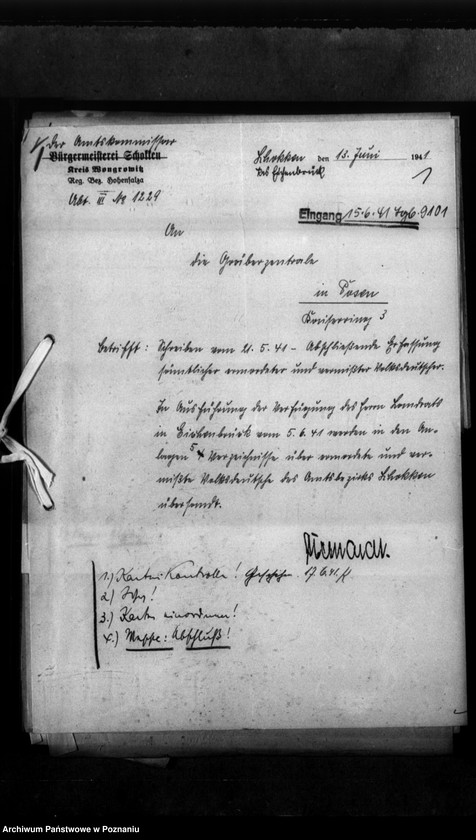 Der Amtskommissar
Bürgermeisterei Schokken
Kreis Wongrowitz
Reg. Bez. Hohensalza
Abt. III No 1229
Schokken den 13. Juni 1941
Bez. Eichenbrück
1
Eingang 15.6.41 Tgb. 9101
An
die Gräberzentrale
in Posen
Kaiserring 3
Betrifft: Schreiben vom 21.5.41 – Abschließende Erfassung
sämtlicher ermordeter und vermißter Volksdeutscher.
In Ausführung der Verfügung des Herrn Landrats
in Eichenbrück vom 5.6.41 werden in den An-
lagen 5 Verzeichnisse über ermordete und ver-
mißte Volksdeutsche des Amtsbezirks Schokken
übersandt.
1.) Karteikontrolle! 17.6.41.
2.)
3.) Karten einordnen!
4.) Mappe: Abschluß!
Archiwum Państwowe w Poznaniu